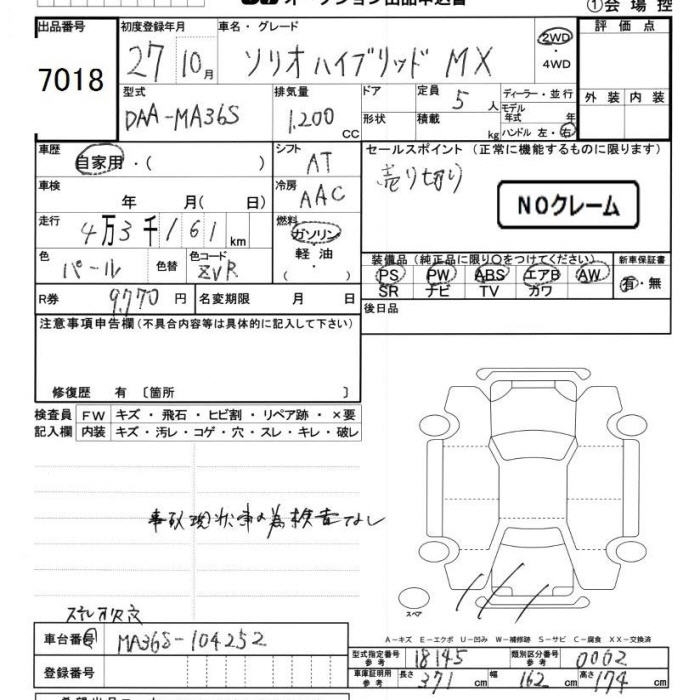 ①会場控
出品番号 初度登録年月 車名・グレード 2WD ・ 4WD 評価点
7018 27 10月 ソリオハイブリッド MX
型式 排気量 ドア 定員 ディーラー・並行 外装 内装
DAA-MA36S 1,200 cc 5人 モデル年式 年
形状 積載 kg ハンドル 左・右
車歴 シフト セールスポイント (正常に機能するものに限ります)
自家用・( ) AT 売り切り
車検 年 月( 日) 冷房 AAC NOクレーム
走行 4万3千161km 燃料 ガソリン・軽油・( )
色 パール 色替 色コード ZVR
装備品(純正品に限り〇をつけてください) 新車保証書
PS PW ABS エアB AW 有・無
SR ナビ TV カワ
R券 9,770円 名変期限 月 日 後日品
注意事項申告欄(不具合内容等は具体的に記入して下さい)
修復歴 有 〔箇所 〕
検査員 FW キズ・飛石・ヒビ割・リペア跡・×要
記入欄 内装 キズ・汚レ・コゲ・穴・スレ・キレ・破レ
事故現状車の為検査なし
スペア
ステレオ欠品
A-キズ E-エクボ U-凹み W-補修跡 S-サビ C-腐食 XX-交換済
車台番号 MA36S-104252
型式指定番号 参考 18145 類別区分番号 参考 0002
登録番号 車庫証明用 参考 長さ 371cm 幅 162cm 高さ 174cm